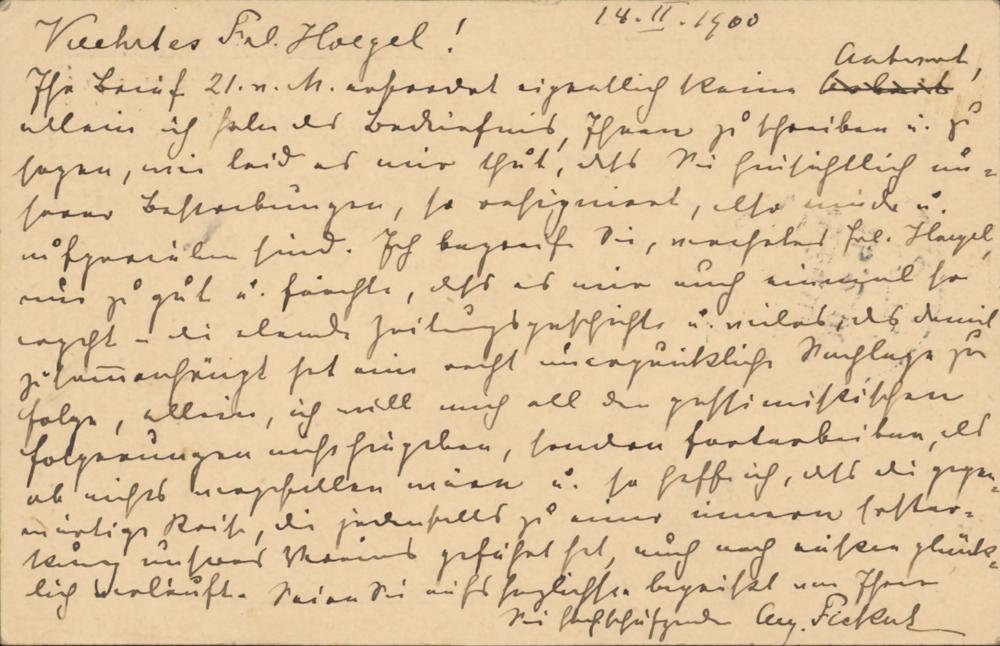 14.II.1900
Verehrtes Frl. Hoegel!
Ihr Brief 21. v. M. erfordert eigentlich keine Antwort,
allein ich habe das Bedürfnis, Ihnen zu schreiben u. zu
sagen, wie leid es mir thut, daß Sie hinsichtlich un=
serer Bestrebungen, so resigniert, also müde u.
aufgerieben sind. Ich begreife Sie, verehrtes Frl. Hoegel,
nur zu gut u. fürchte, daß es mir auch einmal so
ergeht – die elende Zeitungsgeschichte u. vieles, das damit
zusammenhängt hat eine recht unerquickliche Sachlage zur
Folge, allein, ich will mich all den pessimistischen
Folgerungen nicht hingeben, sondern fortarbeiten, als
ob nichts vorgefallen wäre u. so hoffe ich, daß die gegen=
wärtige Krise, die jedenfalls zu einer inneren Erstar=
kung unseres Vereins geführt hat, auch nach außen glück=
lich verläuft. Seien Sie aufs herzlichste begrüßt von Ihrer
Sie hochschätzenden Aug. Fickert